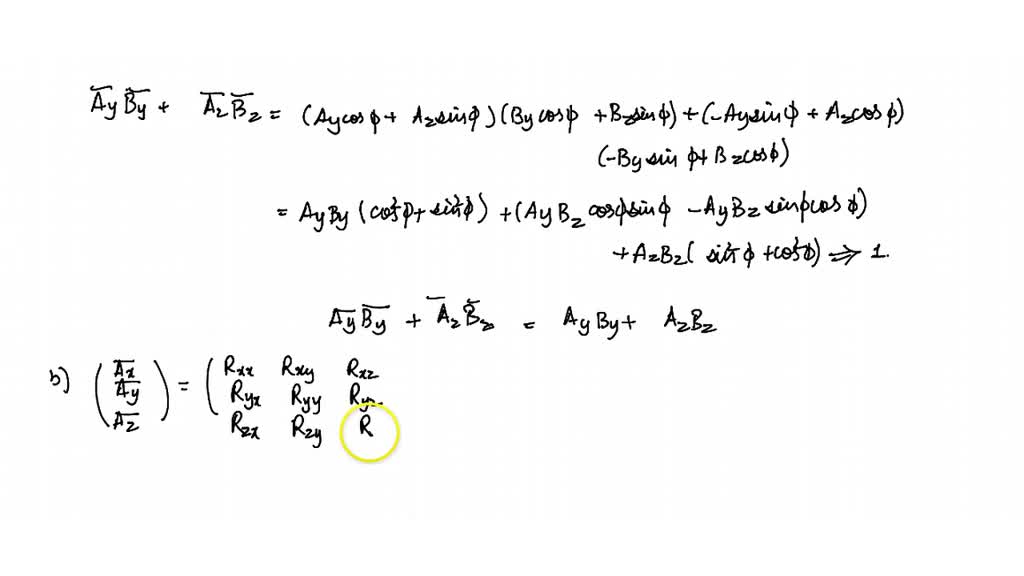 A̅y B̅y + A̅z B̅z = (Ay cos φ + Az sin φ) (By cos φ + Bz sin φ) + (-Ay sin φ + Az cos φ)
(-By sin φ + Bz cos φ)
= Ay By (cos²φ + sin²φ) + (Ay Bz cos φ sin φ - Ay Bz sin φ cos φ)
+ Az Bz ( sin² φ + cos² φ) ⇒ 1.
A̅y B̅y + A̅z B̅z = Ay By + Az Bz
b) ( A̅x ) = ( Rxx Rxy Rxz
A̅y Ryx Ryy Ryz
A̅z Rzx Rzy R